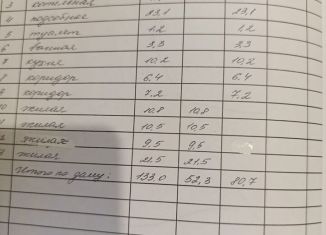 3 котельная
4 подсобное 23,1 23,1
5 туалет 1,2 1,2
6 ванная 3,3 3,3
7 кухня 10,2 10,2
8 коридор 6,4 6,4
9 коридор 7,2 7,2
10 жилая 10,8 10,8
жилая 10,5 10,5
жилая 9,5 9,5
жилая 21,5 21,5
Итого по дому: 133,0 52,3 80,7